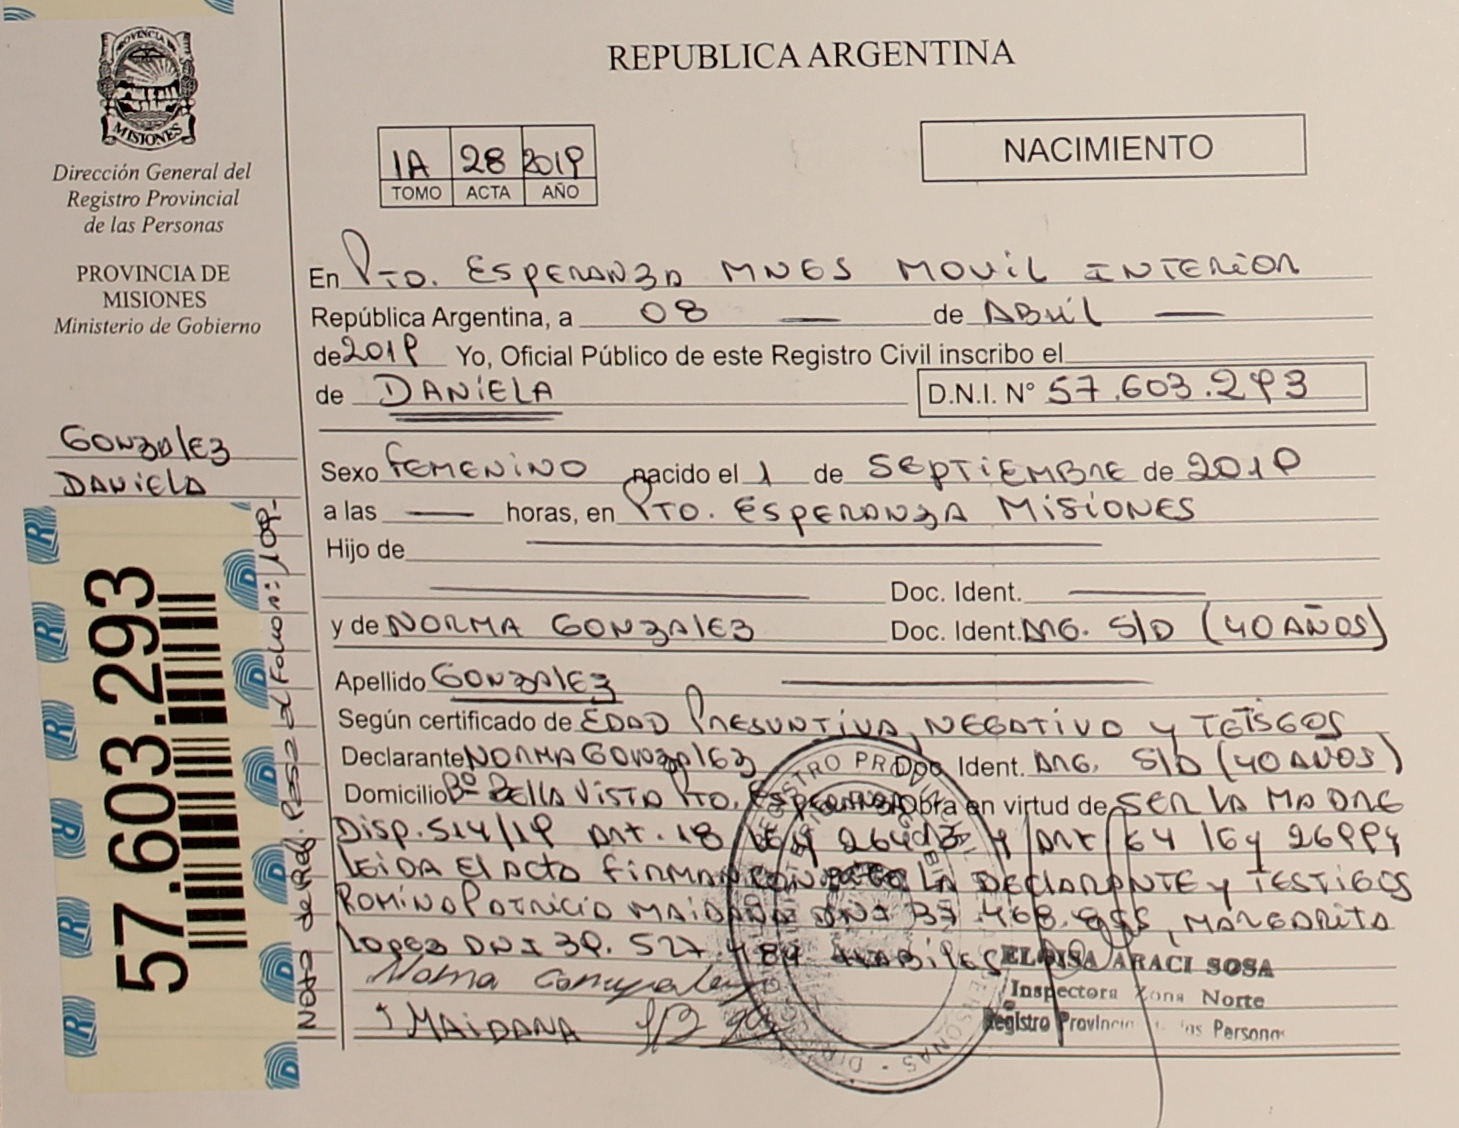 PROVINCIA DE
MISIONES
Dirección General del
Registro Provincial
de las Personas
PROVINCIA DE
MISIONES
Ministerio de Gobierno
GONZALEZ
DANIELA
57.603.293
Nota de Ref. Pasa al Folio n: 109-
REPUBLICA ARGENTINA
1A 28 2019
TOMO ACTA AÑO
NACIMIENTO
En Pto. ESPERANZA MNES MOVIL INTERIOR
República Argentina, a 08 de ABRIL
de 2019 Yo, Oficial Público de este Registro Civil inscribo el
de DANIELA D.N.I. N° 57.603.293
Sexo FEMENINO nacido el 1 de SEPTIEMBRE de 2010
a las horas, en PTO. ESPERANZA MISIONES
Hijo de
Doc. Ident.
y de NORMA GONZALEZ Doc. Ident. ARG. S/D (40 AÑOS)
Apellido GONZALEZ
Según certificado de EDAD PRESUNTIVA, NEGATIVO Y TETSGOS
Declarante NORMA GONZALEZ Doc Ident. ARG. S/D (40 AÑOS)
Domicilio Bº BELLA VISTA PTO. ESPERANZA Obra en virtud de SER LA MADRE
DISP. 514/19 ART. 18 LEY 26413 Y ART 64 LEY 26994
LEIDA EL ACTA FIRMAN LA DECLARANTE Y TESTIGOS
ROMINA PATRICIA MAIDANA DNI 37.468. MARGARITA
LOPEZ DNI 39.527.484 HABILES
ELOISA ARACI SOSA
Inspectora Zona Norte
Registro Provincial de las Personas
Norma
MAIDANA